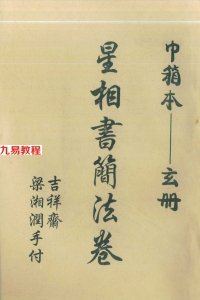 巾箱本——玄册
星相書簡法卷
吉祥齋
梁湘潤手付
九易教程
www.9yijc.com